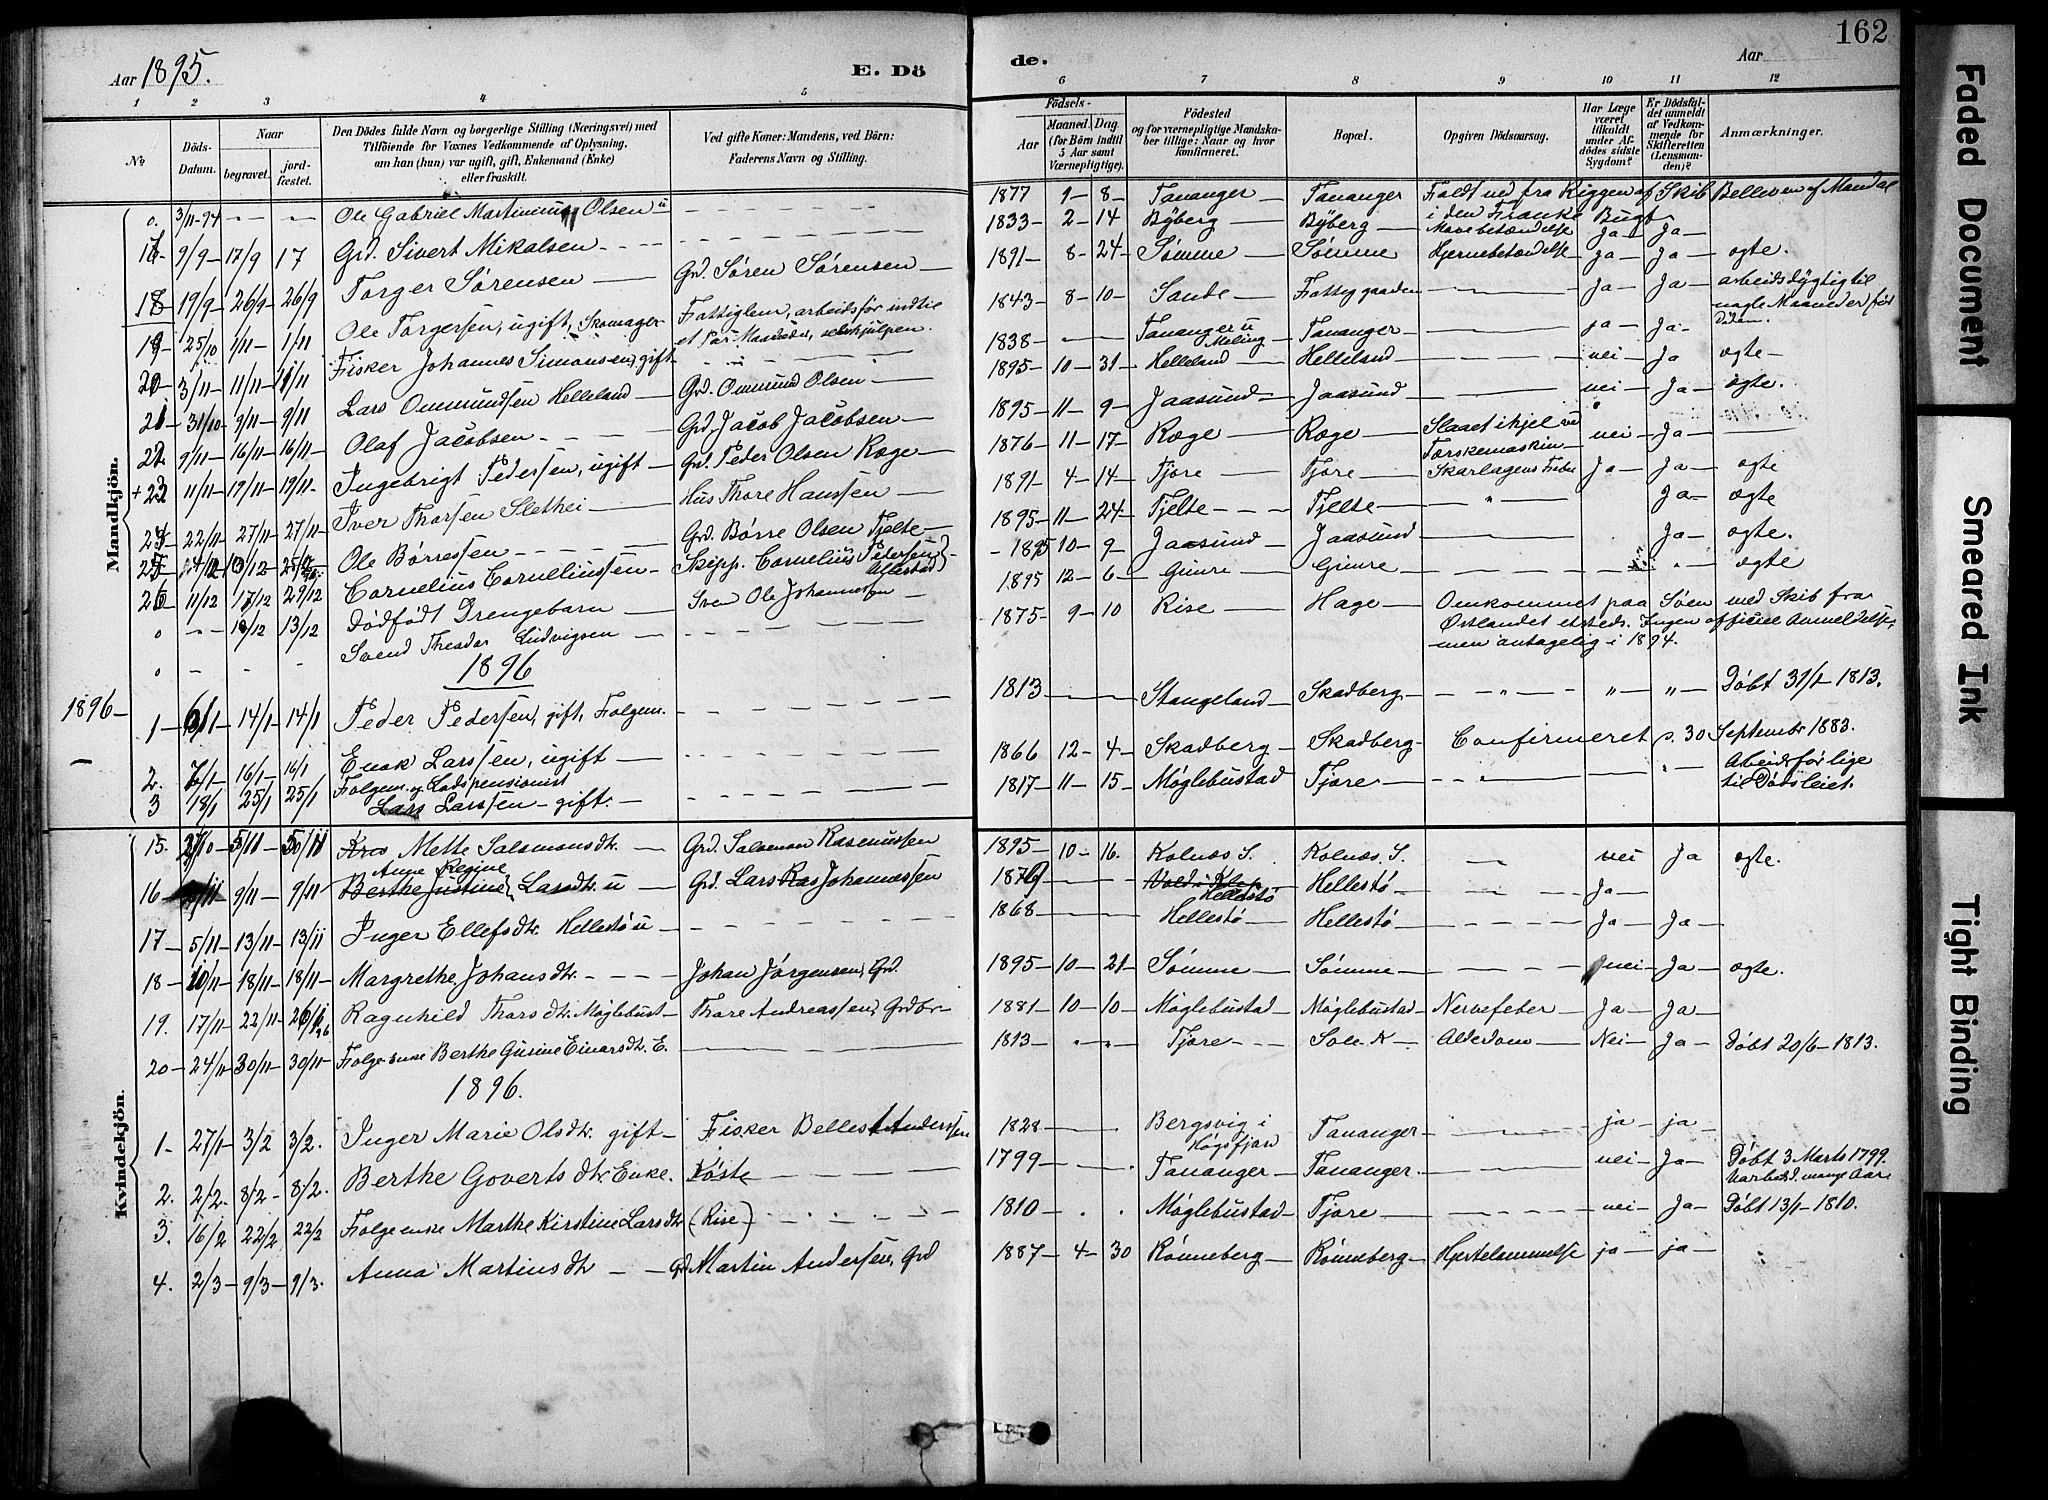 162
Aar 1895.
E. Dö
de.
Aar
1 2 3 4 5
6 7 8 9 10 11 12
No
Döds-Datum.
Naar
begravet.
jord-fæstet.
Den Dödes fulde Navn og borgerlige Stilling (Næringsvei) med
Tilföiende for Voxnes Vedkommende af Oplysning,
om han (hun) var ugift, gift, Enkemand (Enke)
eller fraskilt.
Ved gifte Koner: Mandens, ved Börn:
Faderens Navn og Stilling.
Födsels-
Aar
Maaned. Dag.
(for Börn indtil
5 Aar samt
Værnepligtige).
Födested
og for værnepligtige Mandska-
ber tillige: Naar og hvor
konfirmeret.
Bopæl.
Opgiven Dödsaarsag.
Har Læge
været
tilkaldt
under Af-
dödes sidste
Sygdom?
Er Dödsfal-
det anmeldt
af Vedkom-
mende for
Skifteretten
(Lensman-
den)?
Anmærkninger.
Mandkjön.
0. 3/11-94 - - Ole Gabriel Martinius Olsen u - - - 1877 9-8- Tananger Tananger Faldt ned fra Riggen af Skib Belleven af Mandal
i den Franke Bugt
9/9- 17/9 17 Grd. Sivert Mikalsen - - - 1833- 2-14 Byberg Byberg Mavebetændelse Ja- Ja-
18 19/9- 26/9- 26/9 Torger Sørensen Grd. Søren Sørensen 1891- 8-24 Sømme Sømme Hjernebetændelse Ja- Ja- ægte.
19- 25/10 1/11- 1/11 Ole Torgersen, ugift, Skomager Fattiglem, arbeidsfør indtil 1843- 8-10- Sande Fattiggaarden Ja- Ja- arbeidsdygtig til
nogle Maaneder før
Døden.
20- 3/11- 11/11- 11/11 Fisker Johannes Simonsen, gift 1838- Tananger u Meling Tananger ja- Ja-
21- 31/10- 9/11- 9/11 Lars Ommundsen Helleland Grd. Ommund Olsen 1895- 10-31- Helleland Helleland nei- Ja ægte-
22. 9/11- 16/11- 16/11- Olaf Jacobsen Grd. Jacob Jacobsen 1895- 11-9- Jaasund Jaasund nei- Ja- ægte.
+23 11/11- 19/11- 19/11- Ingebrigt Pedersen, ugift Grd. Peder Olsen Ræge 1876- 11-17- Ræge Ræge Slaaet ihjel ved
Tærskemaskin nei- Ja-
22/11- 27/11- 27/11- Iver Thorsen Slethei Hus Thore Hanssen 1891- 4-14- Tjore Tjore Skarlagens Feber Ja- Ja- ægte
Ole Børressen Grd. Børre Olsen Tjelte 1895- 11-24- Tjelte Tjelte " Ja- ægte
26 11/12 29/12 Cornelius Corneliussen Skipp. Cornelius Pedersen 1895 10-9- Jaasund Jaasund Ja- ægte.
0 13/12 Dødfødt Drengebarn Sven Ole Johannesen 1895 12-6- Gimre Gimre ægte
0 - - - Svend Theodor Ludvigsen 1875- 9-10 Rise Hage Omkommet paa Søen med Skib fra
Østlandet etsteds. Ingen officiel Anmeldelse,
men antagelig i 1894.
1896
1896-
1- 6/1 14/1- 14/1 Peder Pedersen, gift, Folgem. 1813 Stangeland Skadberg " " " Døbt 31/1-1813.
2. 7/1- 16/1- 16/1 Enok Larssen, ugift 1866 12-4- Skadberg Skadberg Confirmeret s. 30 September 1883.
3 18/1 25/1 25/1 Folgem. og Lodspensionist
Lars Larssen- gift. 1817- 11-15- Møglebustad Tjore Abeidsfør lige
til Dødsleiet.
Kvindekjön.
15. 27/10- 3/11- 30/11 Mette Salemonsdtr. Grd. Salemon Rasmussen 1895- 10-16. Kolnæs S. Kolnæs. S. nei Ja ægte.
Anne Regine
16 9/11- 9/11 Berthe Justine Larsdtr. u Grd. Lars Ras Johannessen 1879 Hellestø Hellestø Ja-
17- 5/11- 13/11- 13/11 Inger Ellefsdtr. Hellestø u 1868 Hellestø Hellestø Ja- Ja-
18- 10/11- 18/11- 18/11- Margrethe Johansdtr. Johan Jørgensen, Grd. 1895- 10-21- Sømme Sømme nei- Ja- ægte.
19. 17/11- 22/11- Ragnhild Thorsdtr. Møglebust Thore Andreassen, Grdbr- 1881- 10-10- Møglebustad Møglebustad Nervefeber Ja- Ja-
20- 24/11 30/11- 30/11- Folgeenke Berthe Gurine Einarsdtr. E. 1813- Tjore Sole K Alderdom Nei- Ja- Døbt 20/6-1813.
1896.
1. 27/1- 3/2 3/2. Inger Marie Olsdtr. gift- Fisker Belles Anderssen 1828 Bergsvig i
Høgsfjord Tananger ja ja-
2. 2/2. 8/2- 8/2. Berthe Govertsdtr. Enke. 1799 Tananger Tananger nei- Ja- Døbt 3 Marts 1799.
3. 16/2 22/2 22/2 Folgeenke Marthe Kirstine Larsdtr (Rise) 1810 Møglebustad Tjore nei- Ja- Døbt 13/1-1810.
4. 2/3- 9/3- 9/3. Anna Martinsdtr Martin Andersen, Grd 1887- 4-30 Rønneberg Rønneberg Hjertelammelse ja- ja-
Faded Document
Smeared Ink
Tight Binding